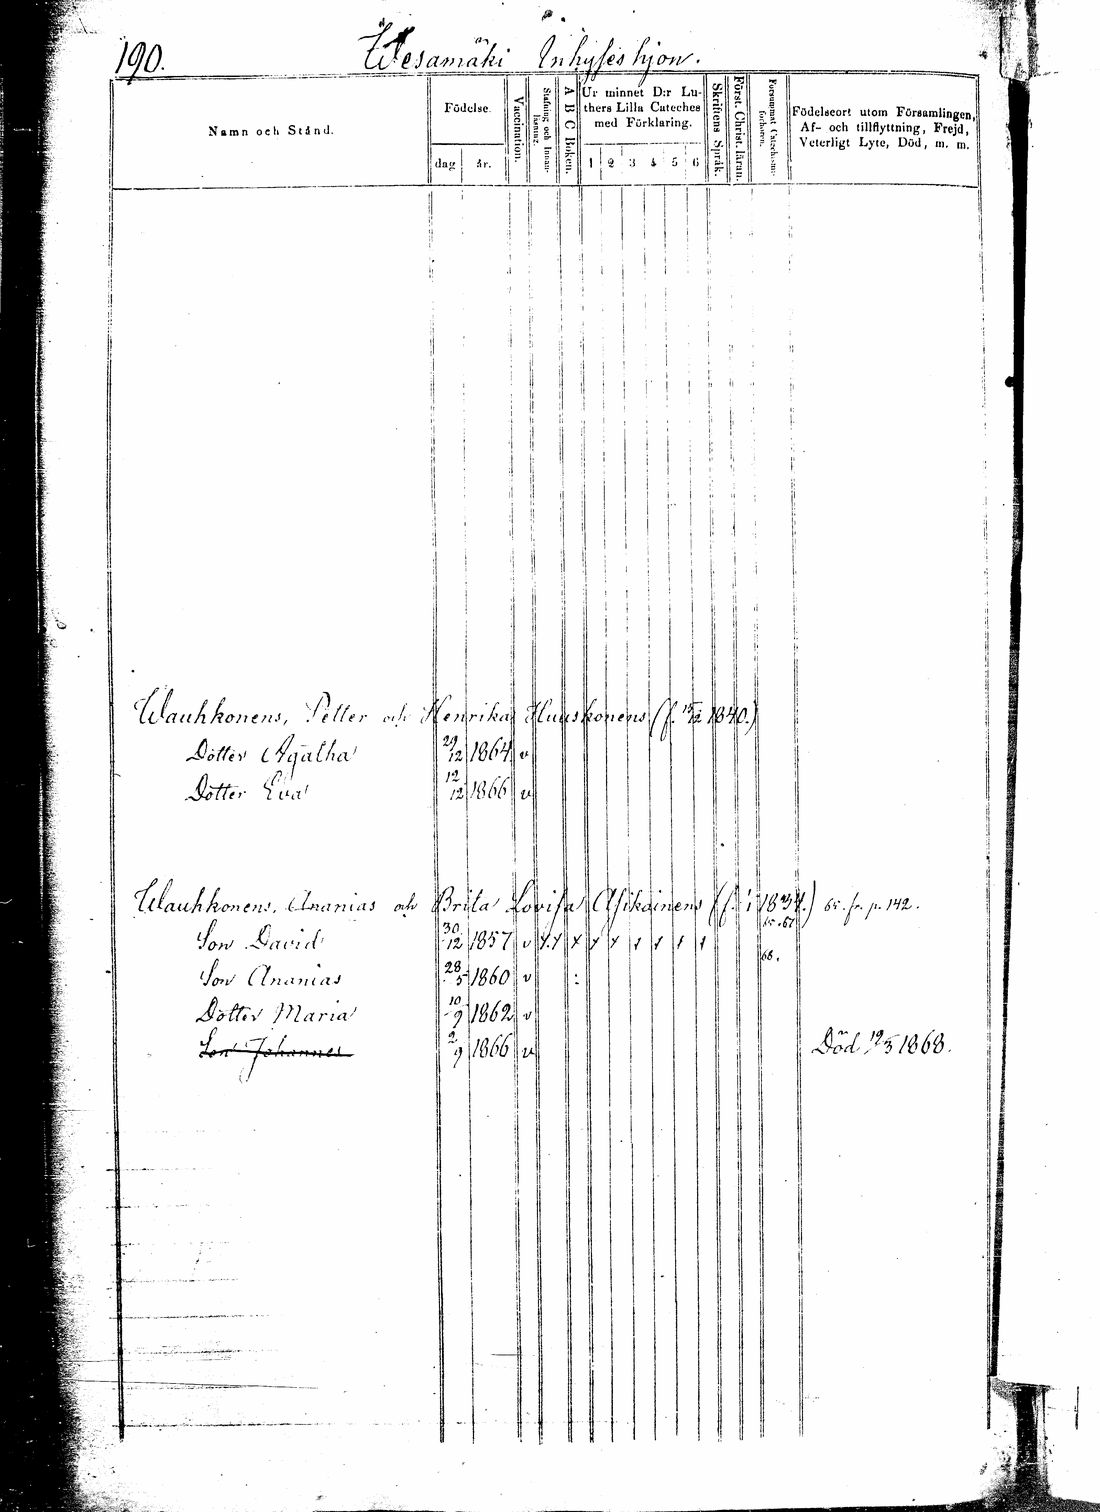 190. Wesamäki Inhyseshjon.
Namn och Stånd.
Födelse.
dag
år.
Vaccination.
Stafning och Innan-
läsning.
A B C Boken.
Ur minnet D:r Lu-
thers Lilla Cateches
med Förklaring.
1 2 3 4 5 6
Skriftens Språk.
Först. Christ. läran.
Försummat Catechism-
förhören.
Födelseort utom Församlingen,
Af- och tillflyttning, Frejd,
Veterligt Lyte, Död, m. m.
Wauhkonens, Petter och Henrika Huuskonens (f. 15/12 1840.)
Dotter Agatha 29/12 1864 v
Dotter Eva 12/12 1866 v
Wauhkonens, Ananias och Brita Lovisa Asikainens (f. 1834.) fr. p. 142.
65. 67
Son David 30/12 1857 v
68.
Son Ananias 28/5 1860 v
Dotter Maria 10/9 1862 v
Son Johannes 2/9 1866 v Död 19/5 1868.